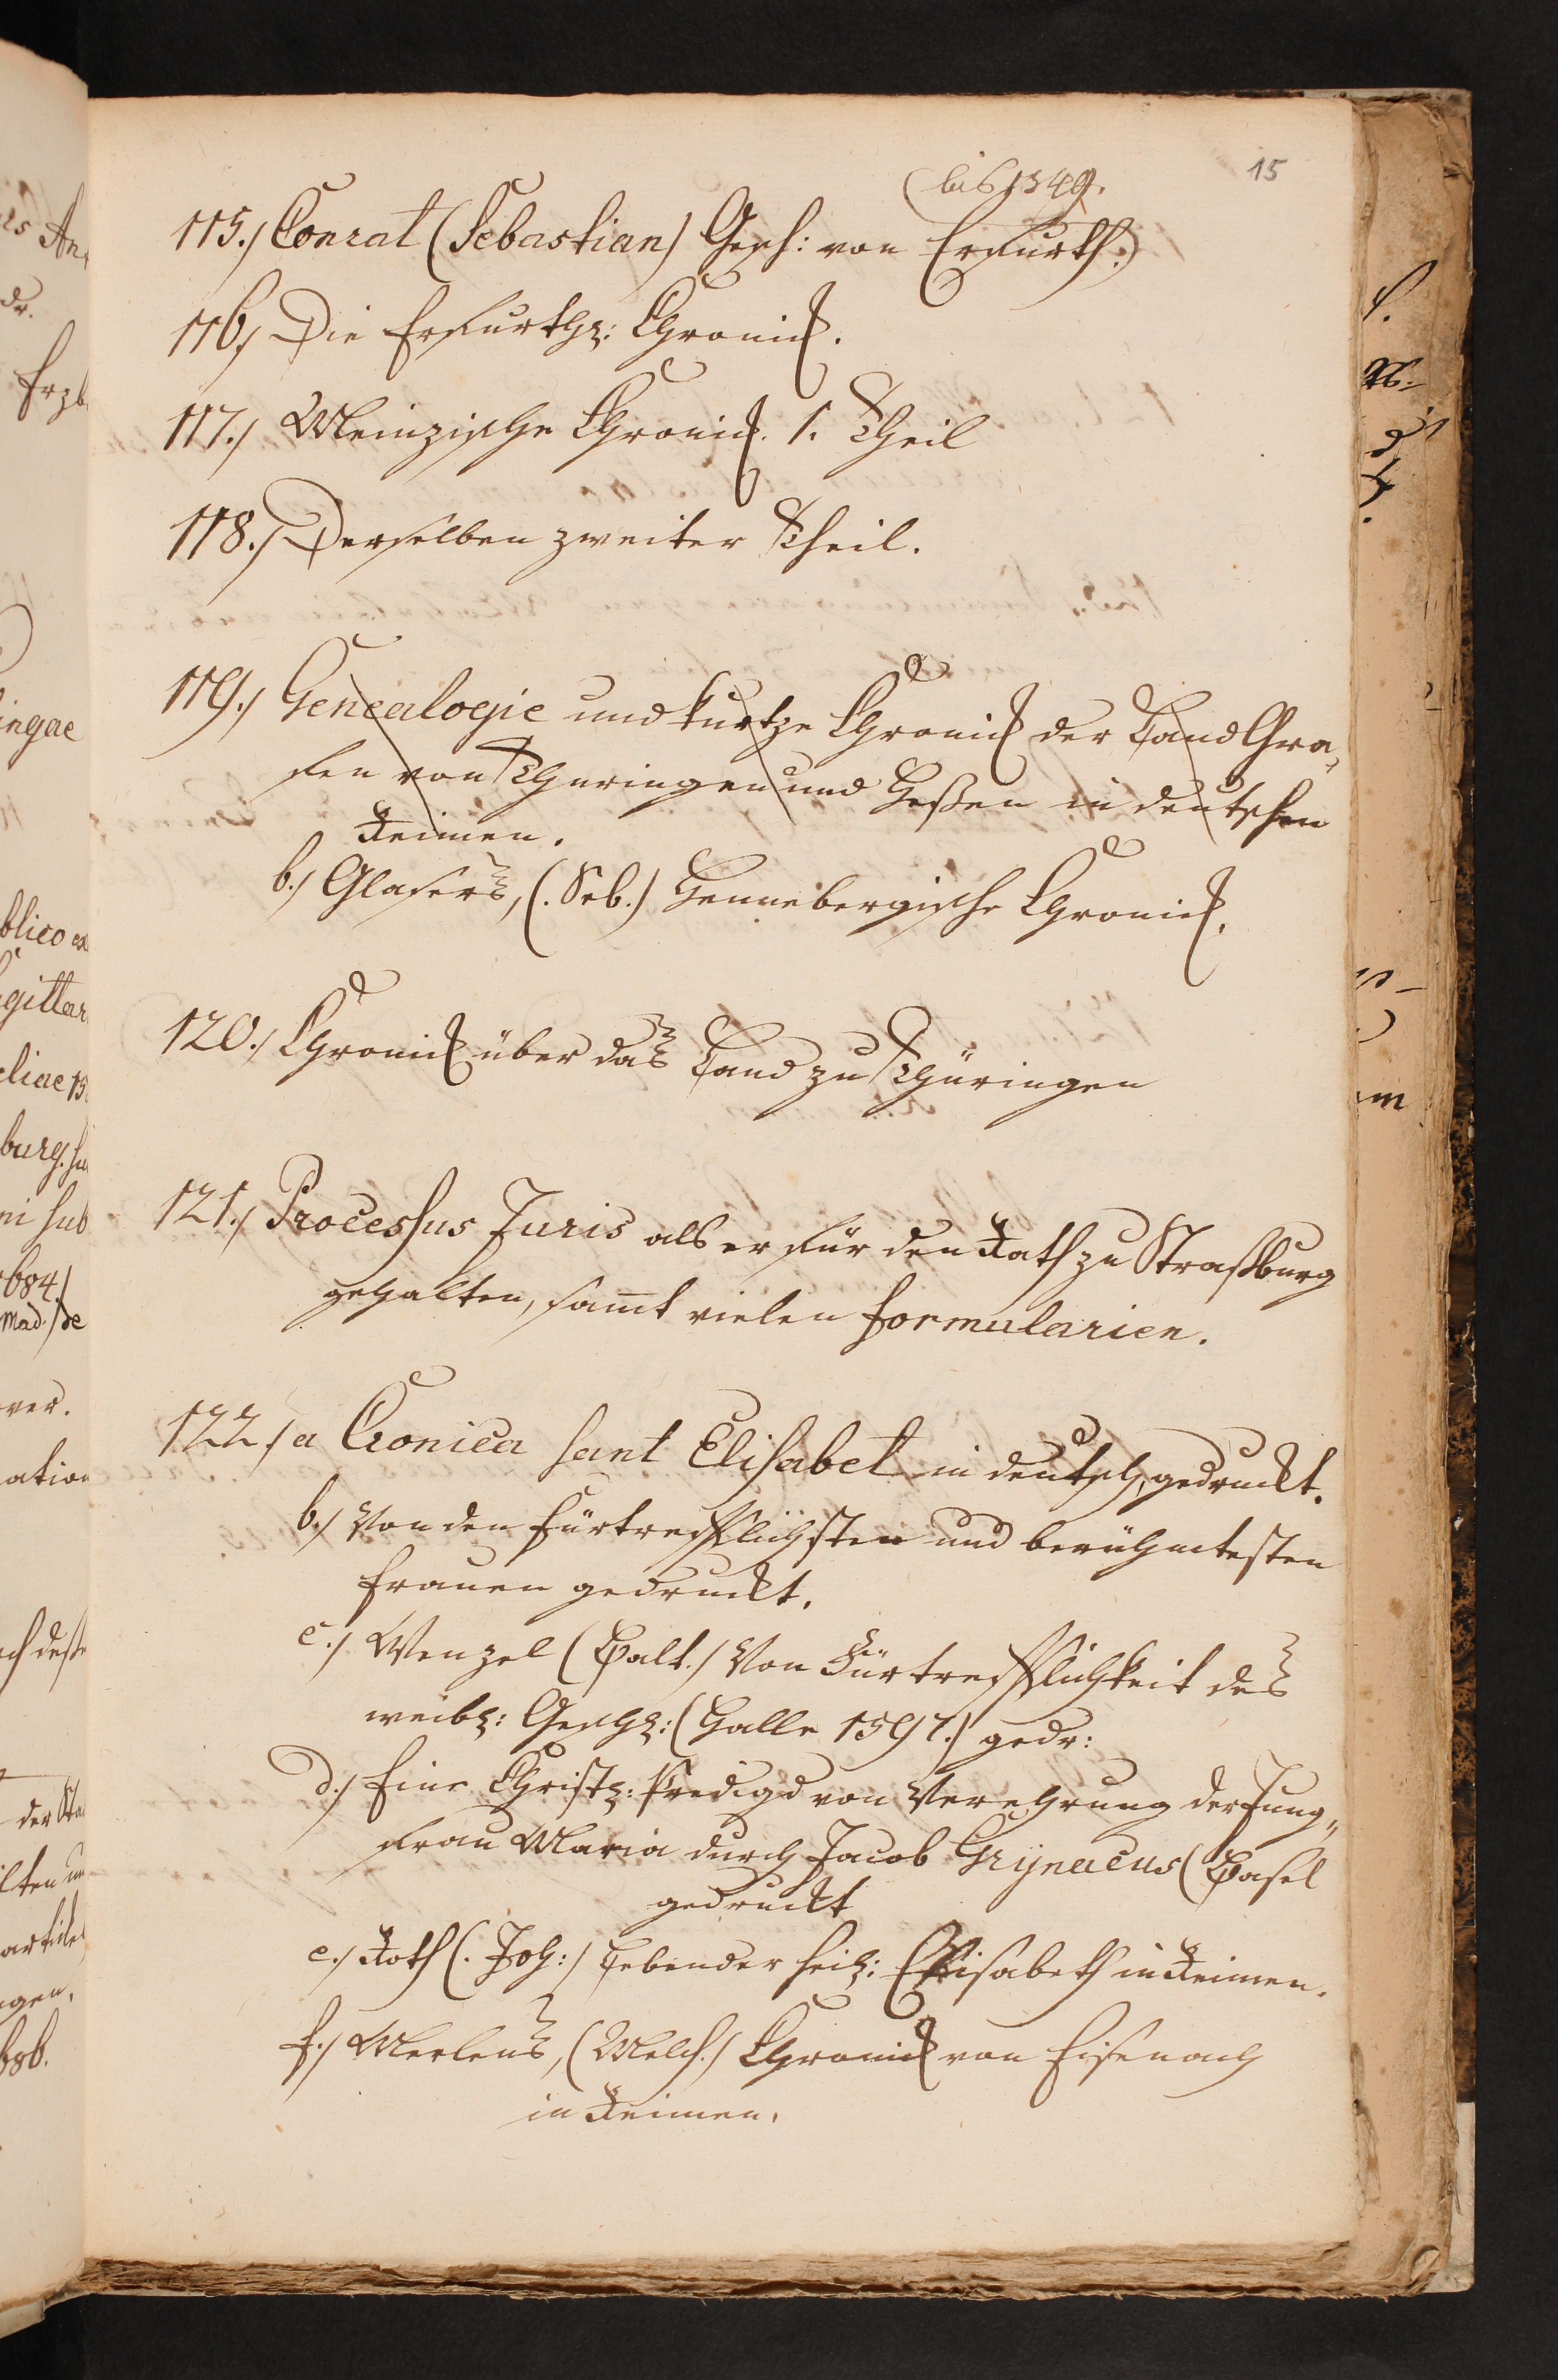 15
(bis 1549.
115./ Conrat (Sebastian) Gesch: von Erfurth.)
116./ Die Erfurthz: Chronick.
117./ Meinzische Chronick. 1. Theil
118./ Derselben zweiter Theil.
119./ Genealogie und kurtze Chronick der Land Gra,
fen von Thuringen und Heßen in deutschen
Reimen.
b./ Glasers, (. Seb.) Hennebergische Chronick.
120./ Chronick über das Land zu Thüringen
121./ Processus Juris als er für den Rath zu Straßburg
gehalten, samt vielen formularien.
122./ a Cronica sant Elisabet in deutsch, gedruckt.
b./ Von den fürtrefflichsten und berühmtesten
frauen gedruckt.
c./ Wenzel (Balt./ Von Fürtrefflichkeit des
weibl: Geschl: (Halle 1597.) gedr:
d./ Eine Christl: Predigd von Verehrung der Jung,,
frau Maria durch Jacob Grÿnaeus (Basel
gedruckt
e./ Roth (. Joh:) Leben der heil: Elisabeth in Reimen.
f./ Merlens, (Melch./ Chronick von Eisenach
in Reimen.